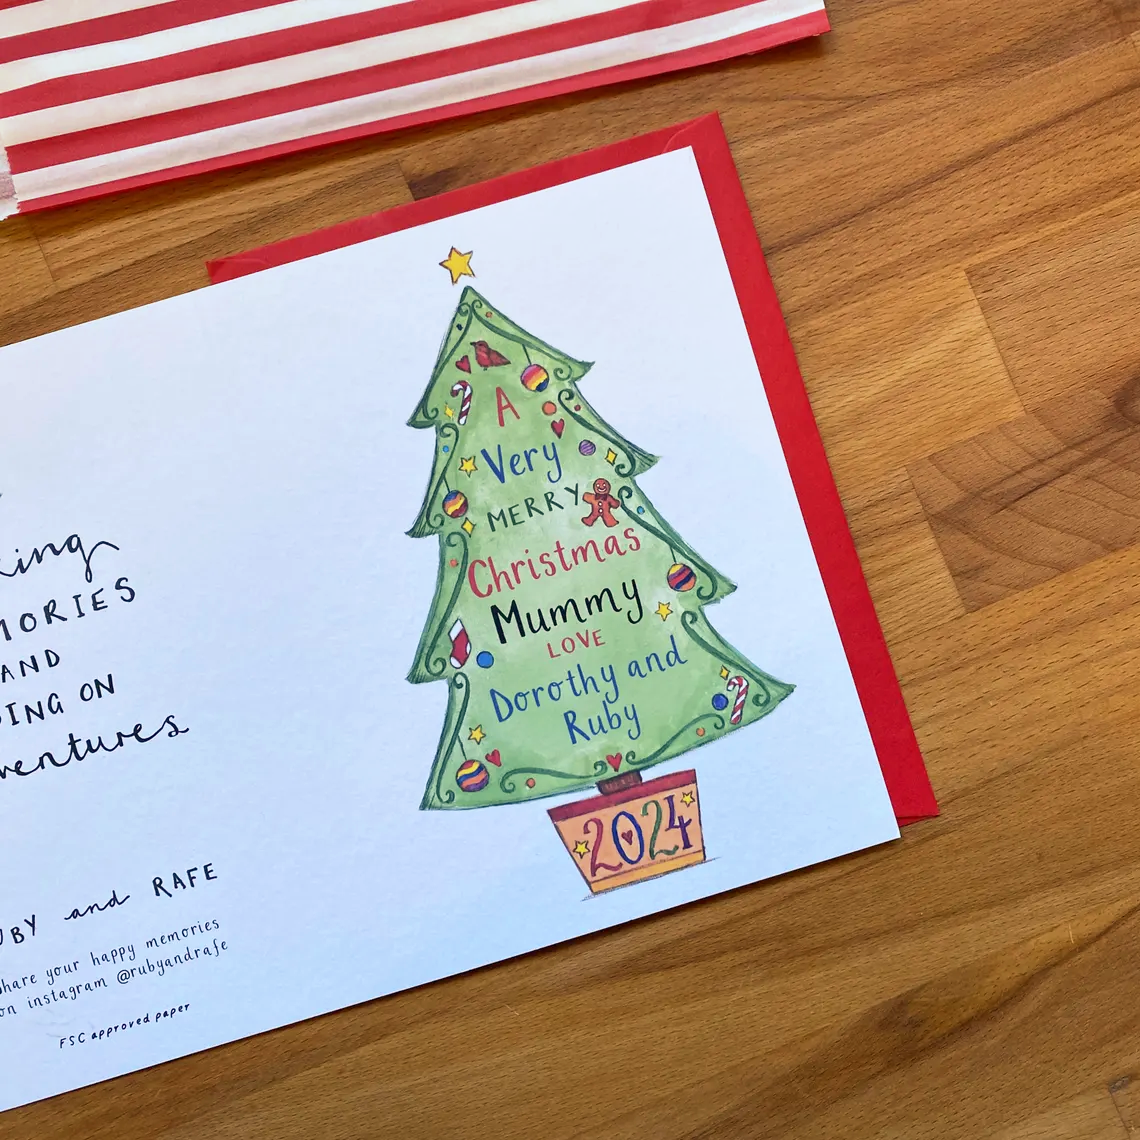 AND
ING ON
RUBY and RAFE
share your happy memories
on instagram @rubyandrafe
FSC approved paper
A
Very
MERRY
Christmas
Mummy
LOVE
Dorothy and
Ruby
2024